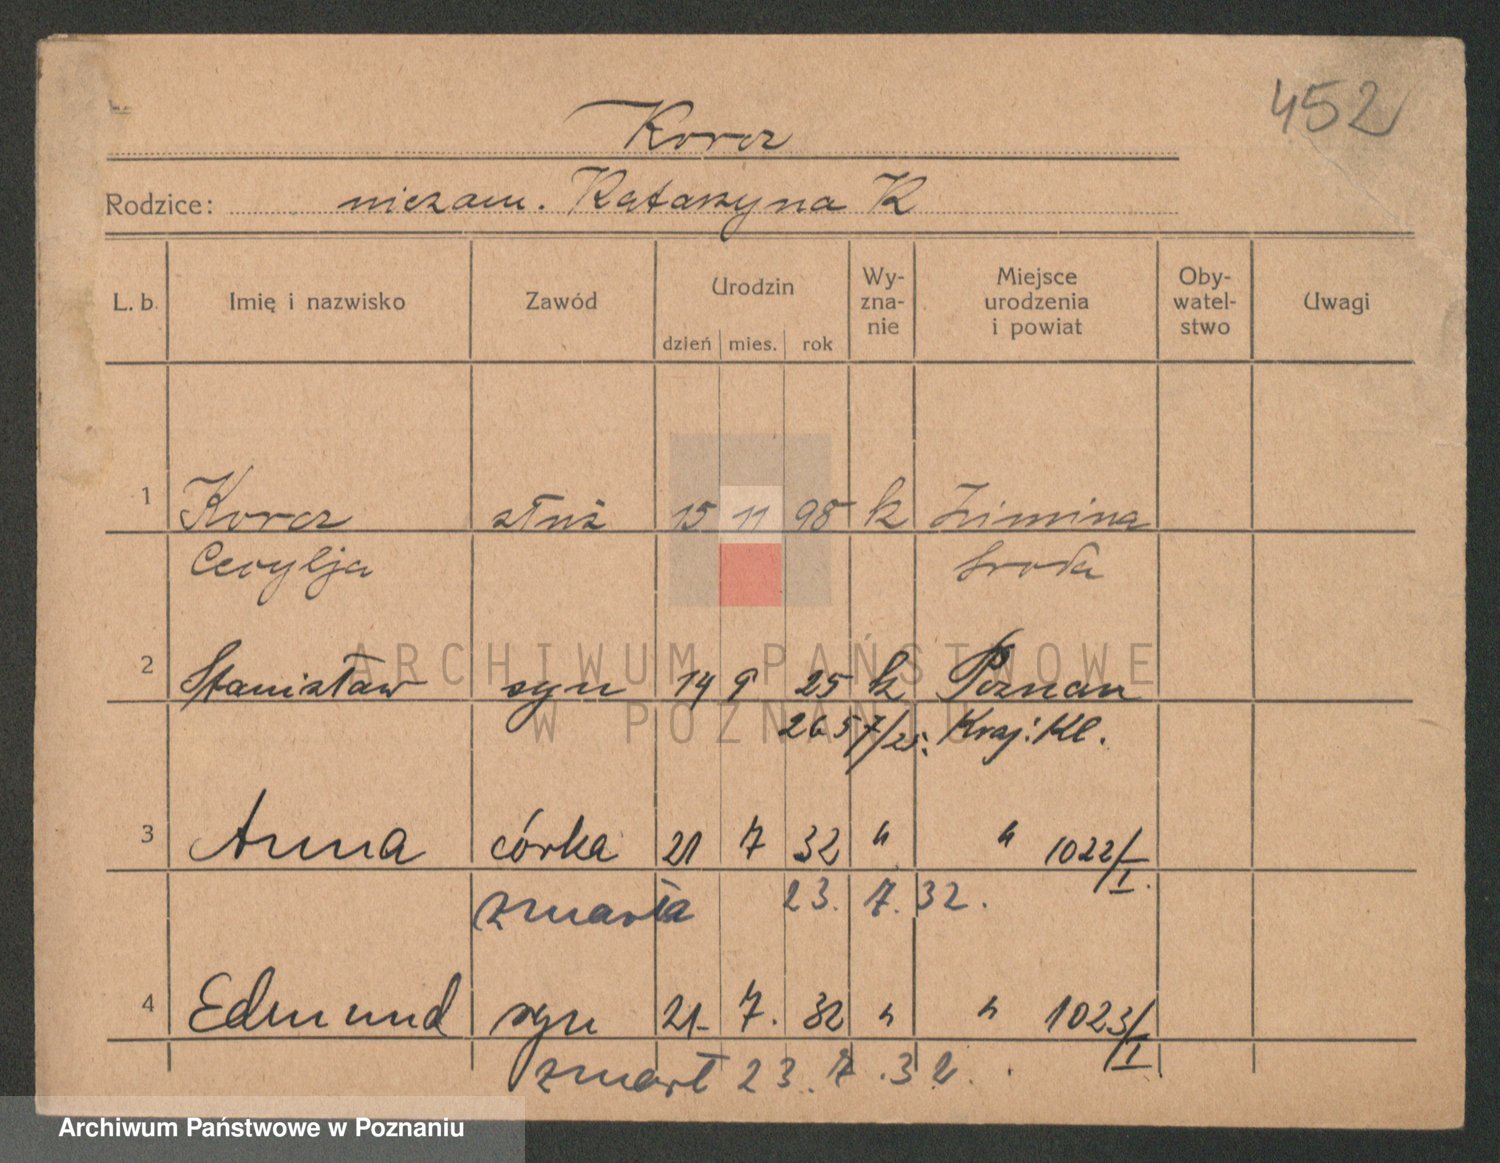 452
Korcz
Rodzice: niezam. Katarzyna K
L. b. Imię i nazwisko Zawód Urodzin dzień mies. rok Wy-zna-nie Miejsce urodzenia i powiat Oby-watel-stwo Uwagi
1 Korcz służ 15 11 98 k Zimina
Cecylja Środa
2 Stanisław syn 14 9 25 k Poznan
2657/25. Kraj. Kl.
3 Anna córka 21 7 32 " " 1022/I.
zmarła 23. 7. 32.
4 Edmund syn 21- 7. 32 " " 1023/I
zmarł 23. 7. 32.
ARCHIWUM PAŃSTWOWE
W POZNANIU
Archiwum Państwowe w Poznaniu